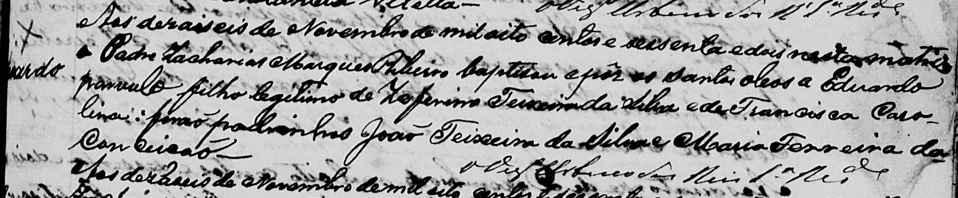 Aos dezaiseis de Novembro de mil oito centos e sessenta e dois nesta matris
o Padre Zacharias Marques Ribeiro baptisou e pôz os Santos oleos a Eduardo
parvulo filho legitimo de Zeferino Teixeira da Silva e de Francisca Caro-
lina: forão padrinhos João Teixeira da Silva e Maria Ferreira da
Conceicão
Aos dezaseis de Novembro de mil oito centos